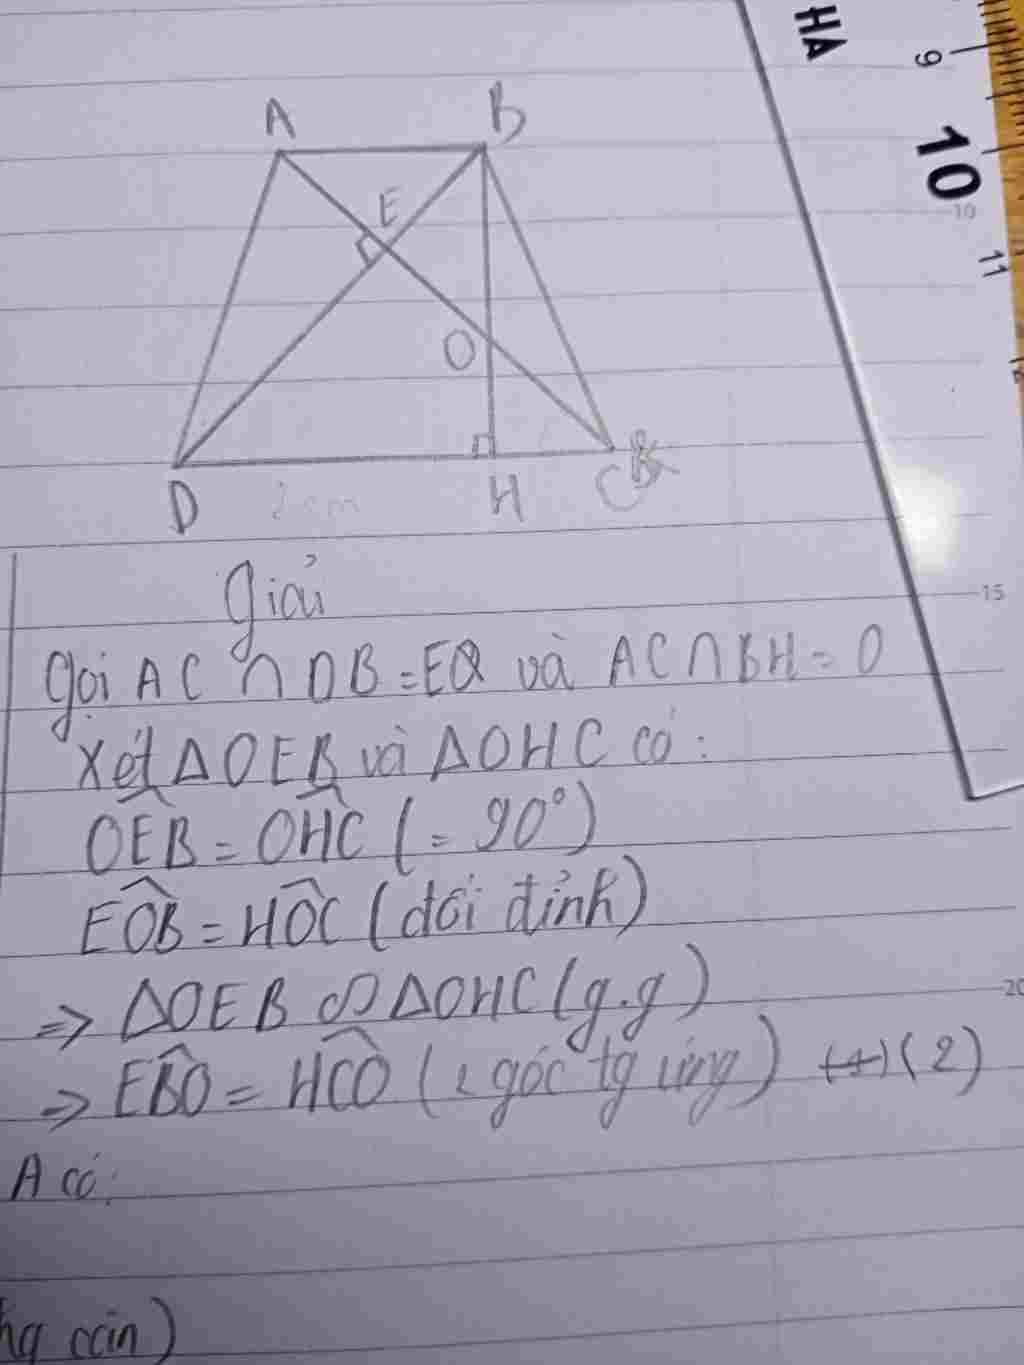 HA
9
10
11
A
B
E
O
D
2 cm
H
C
10
15
20
Giải
Gọi AC ∩ DB = E và AC ∩ BH = O
Xét ΔOEB và ΔOHC có:
OEB = OHC (= 90°)
EOB = HOC (đối đỉnh)
=> ΔOEB ∽ ΔOHC (g.g)
=> EBO = HCO (2 góc tg ứng) (2)
A có:
cân)